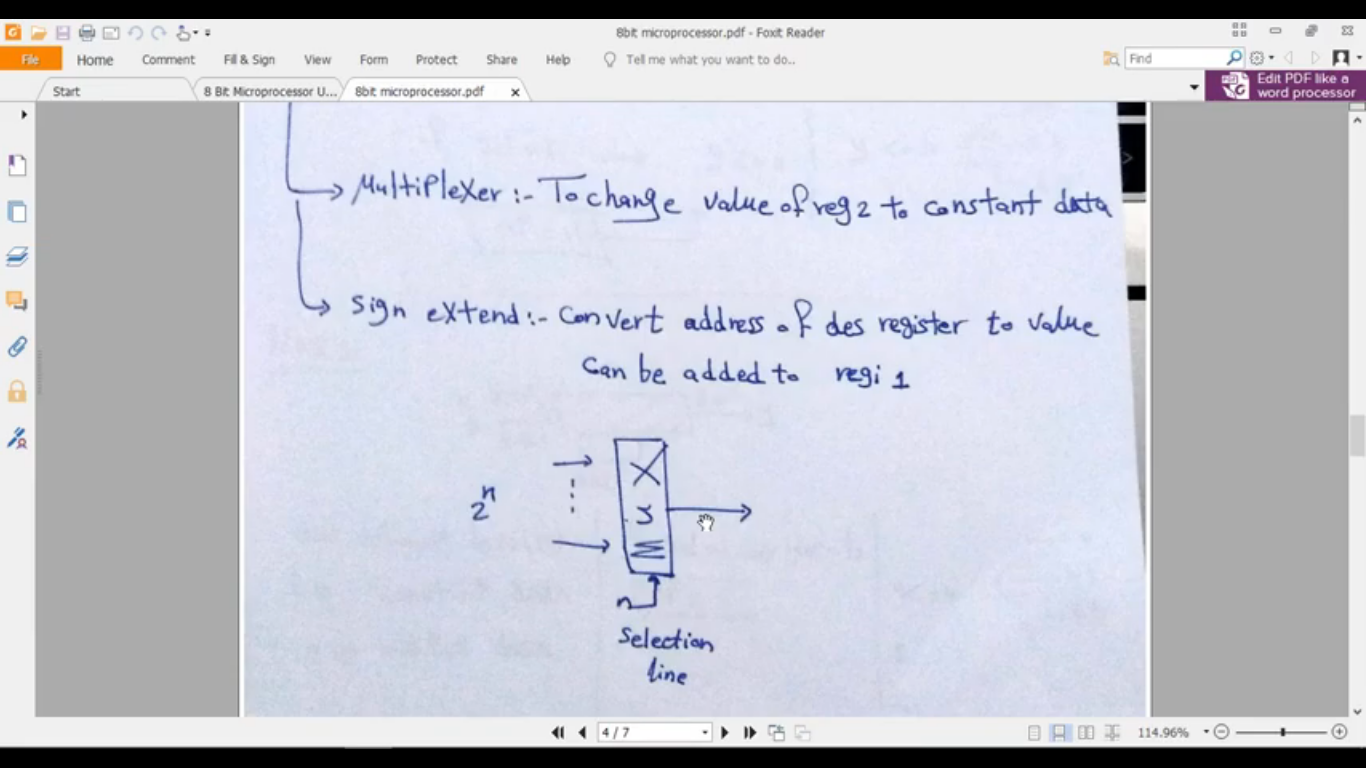 8bit microprocessor.pdf - Foxit Reader
File Home Comment Fill & Sign View Form Protect Share Help Tell me what you want to do.. Find
Edit PDF like a
word processor
Start 8 Bit Microprocessor U... 8bit microprocessor.pdf
Multiplexer :- To change value of reg 2 to constant data
Sign extend :- Convert address of des register to value
can be added to regi 1
2^n
MUX
n
Selection
line
4 / 7 114.96%